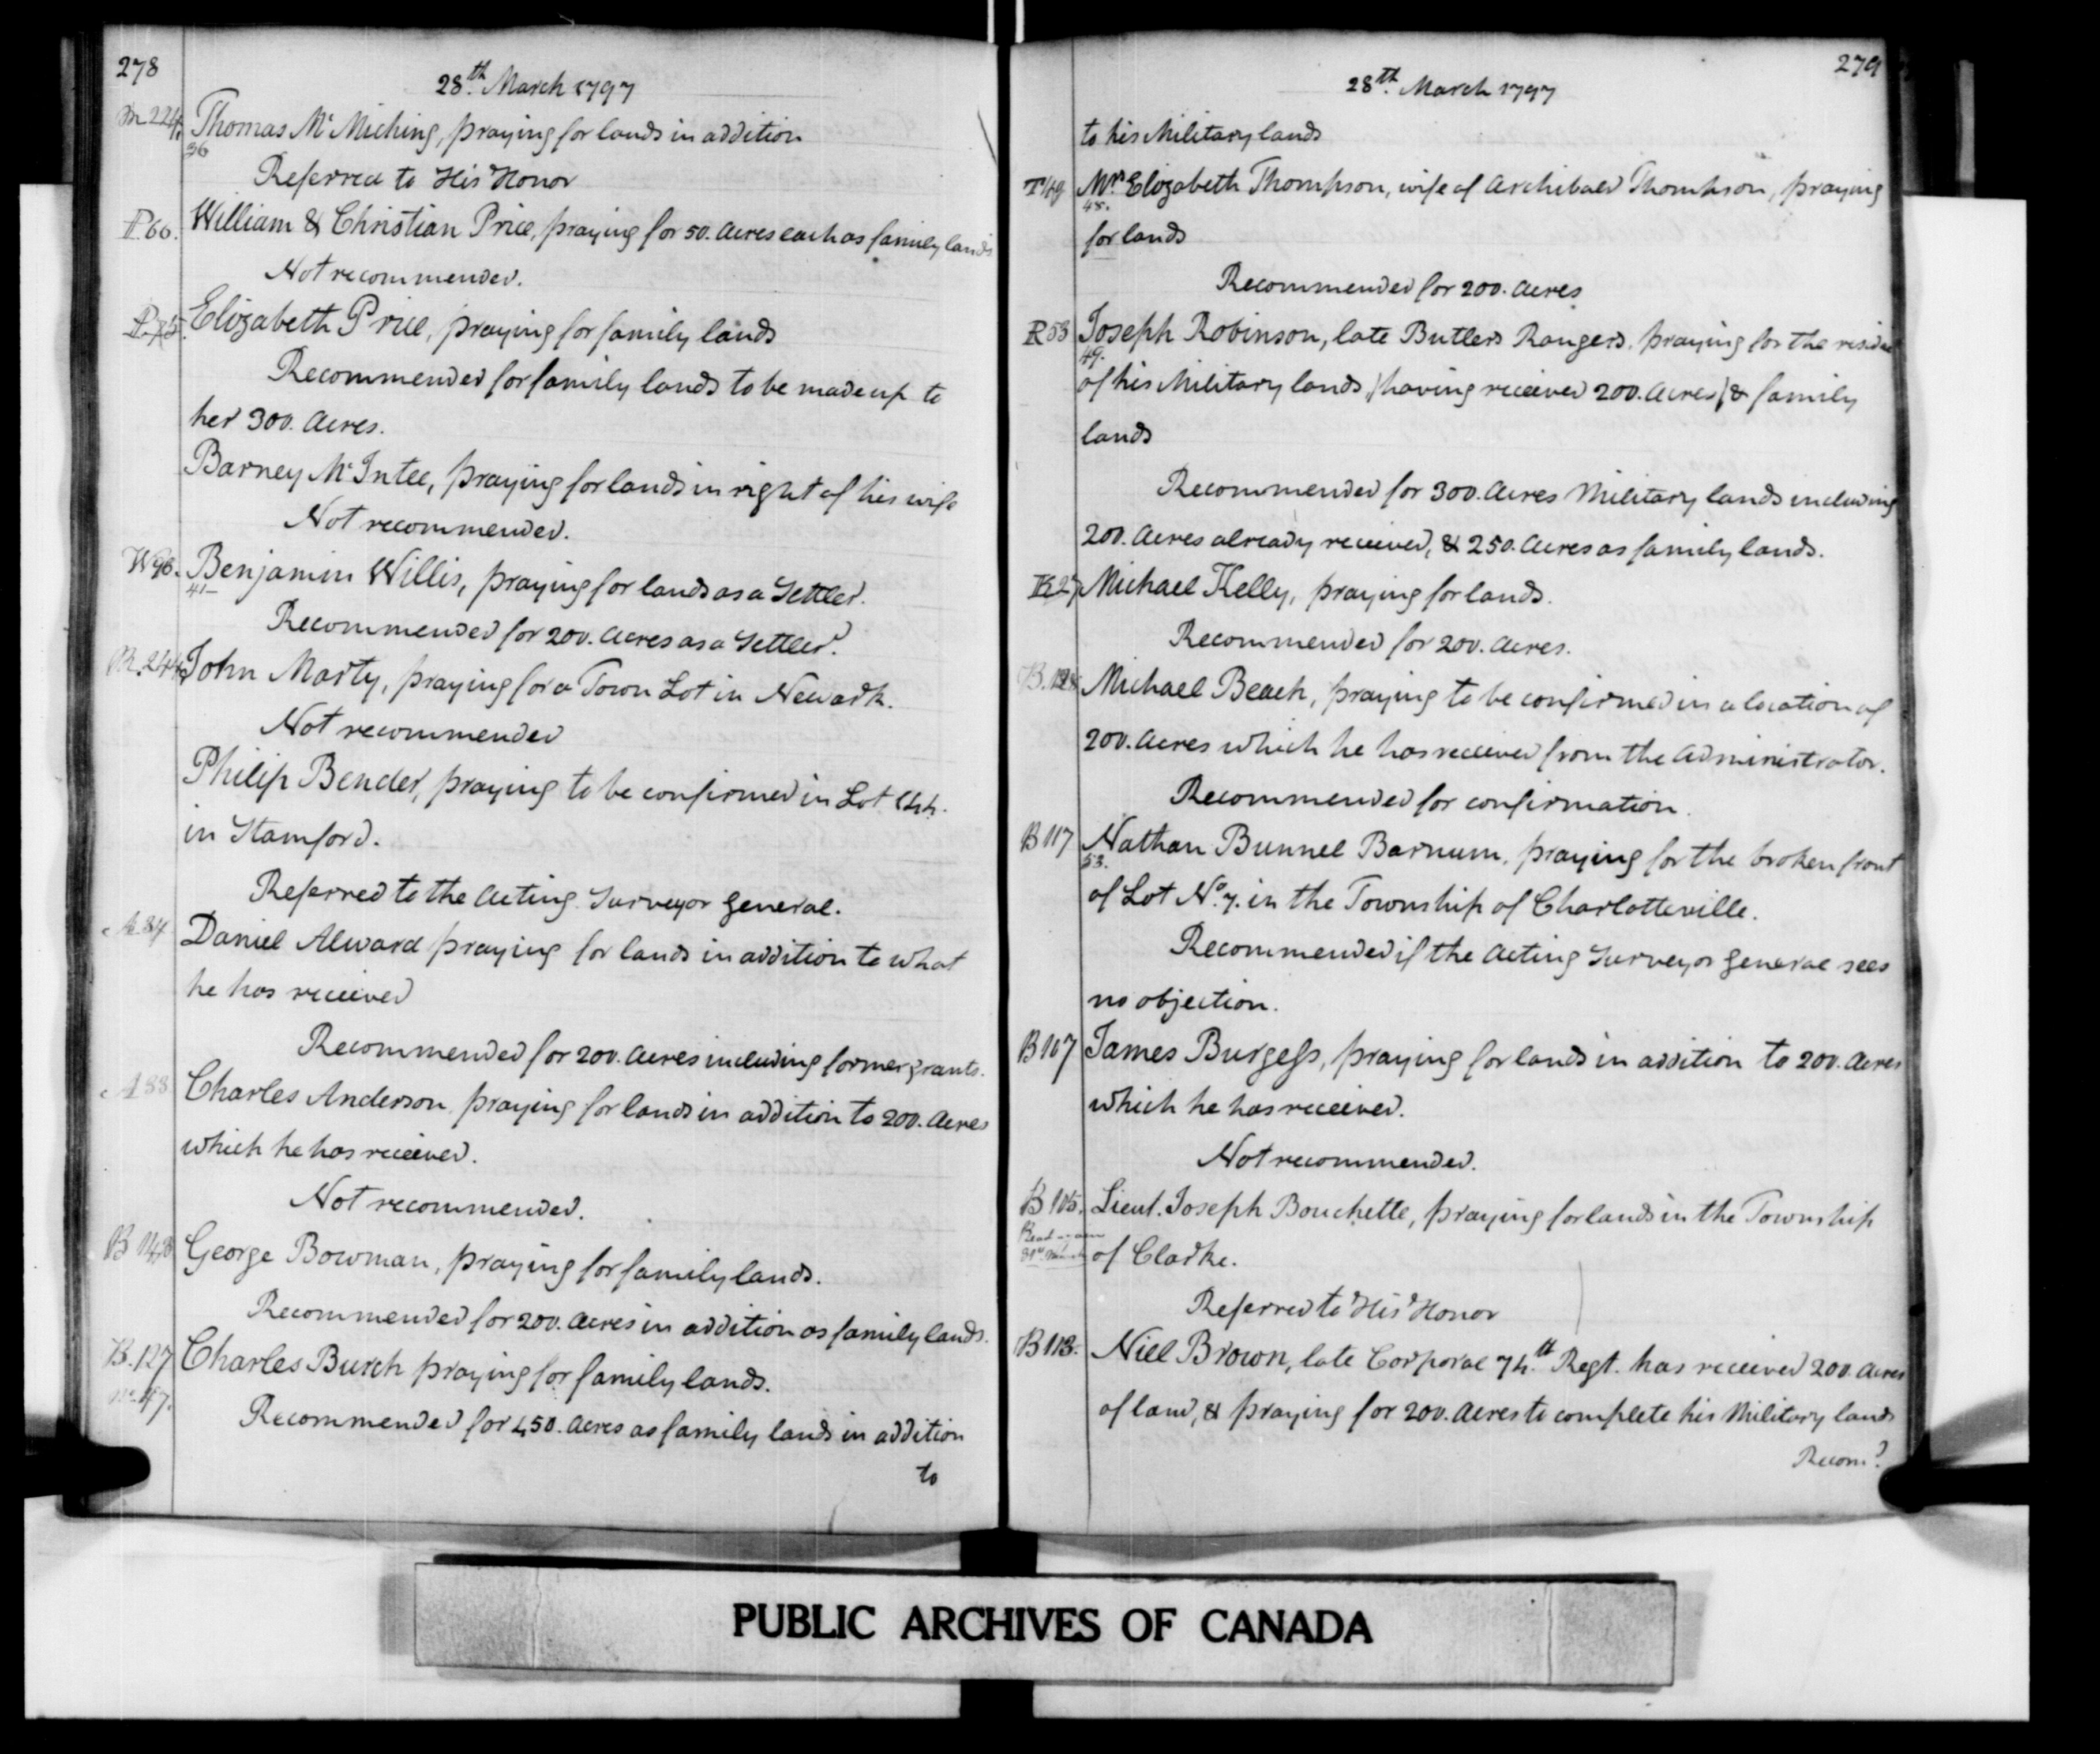 278
28th March 1797
M 224.
Thomas Mc Miching, praying for lands in addition
36
Referred to His Honor
P.66.
William & Christian Price, praying for 50. Acres each as family lands
Not recommended.
Elizabeth Price, praying for family lands
Recommended for family lands to be made up to
her 300. Acres.
Barney McIntee, praying for lands in right of his wife
Not recommended.
W98.
Benjamin Willis, praying for lands as a Settler.
41
Recommended for 200. Acres as a Settler.
M.244
John Marty, praying for a Town Lot in Newark.
Not recommended
Philip Bender, praying to be confirmed in Lot 144.
in Stamford.
Referred to the Acting Surveyor General.
A 84
Daniel Alward praying for lands in addition to what
he has received
Recommended for 200. Acres including former grants.
A 88
Charles Anderson praying for lands in addition to 200. Acres
which he has received.
Not recommended.
B 148
George Bowman, praying for family lands.
Recommended for 200. Acres in addition as family lands.
B.127
Charles Burch praying for family lands.
No. 47.
Recommended for 450. Acres as family lands in addition
to
279
28th March 1797
to his Military lands
T49
Mrs Elizabeth Thompson, wife of Archibald Thompson, praying
48.
for lands
Recommended for 200. Acres
R53
Joseph Robinson, late Butlers Rangers, praying for the residue
49.
of his Military lands, (having received 200. Acres) & family
lands
Recommended for 300. Acres Military lands including
200. Acres already received, & 250. Acres as family lands.
K27
Michael Kelly, praying for lands.
Recommended for 200. Acres.
B.128
Michael Beach, praying to be confirmed in a location of
200. Acres which he has received from the Administrator.
Recommended for confirmation.
B 117
Nathan Bunnel Barnum, praying for the broken front
53.
of Lot No. 7. in the Township of Charlotteville.
Recommended if the Acting Surveyor General sees
no objection.
B 107
James Burgess, praying for lands in addition to 200. Acres
which he has received.
Not recommended.
B 105.
Lieut. Joseph Bouchette, praying for lands in the Township
Read
31st March
of Clarke.
Referred to His Honor
B 113.
Niel Brown, late Corporal 74th Regt. has received 200. Acres
of land, & praying for 200. Acres to complete his Military lands
Recomd
PUBLIC ARCHIVES OF CANADA